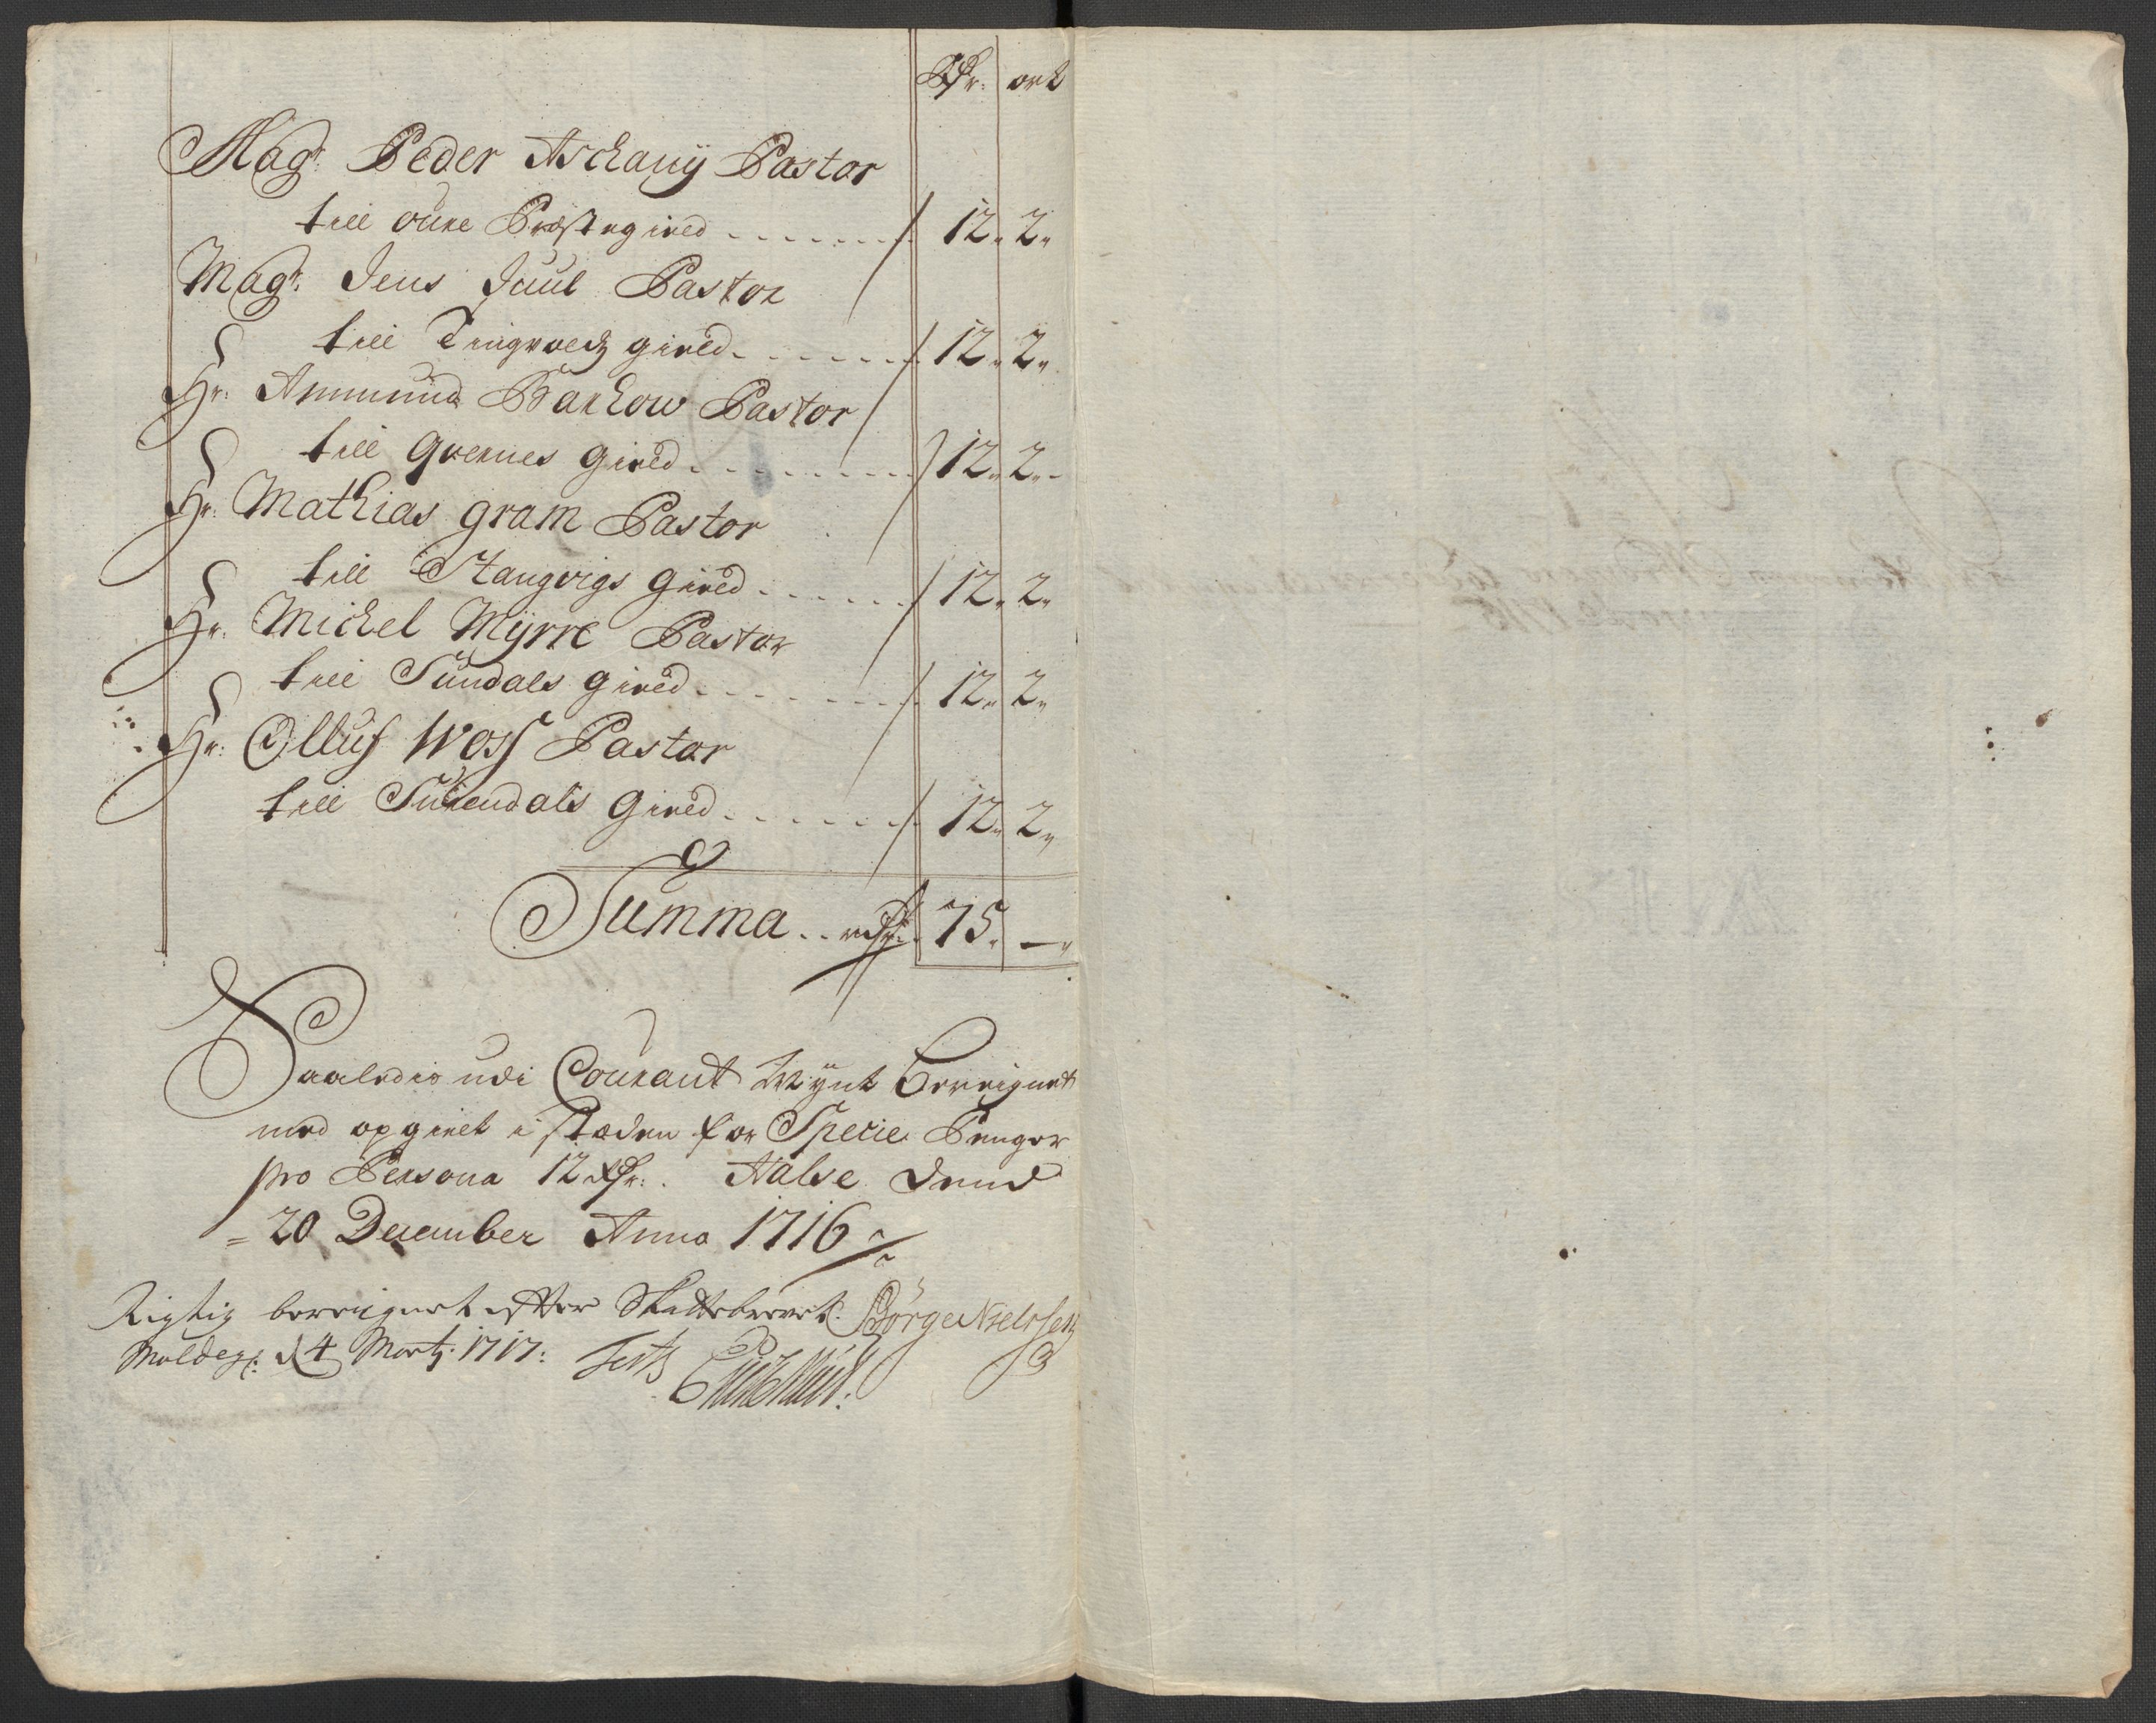 Rdr: ort
Mag: Peder Aschanÿ Pastor
till Øure Præstegield 12. 2.
Magr. Jens Juul Pastor
till Tingvoldz gield 12. 2.
Hr: Ammund Barhow Pastor
till Qvernes gield 12. 2.
Hr: Mathias gram Pastor
till Stangvigs gield 12. 2.
Hr: Michel Mÿrre Pastor
till Sundals gield 12. 2.
Hr: Olluf Woss Pastor
till Surendals gield 12. 2.
Summa .. rdr: 75. —
Saaledis udi Courant Mÿnt Bereignet
med opgield i stæden for Specie Penger
pro Persona 12 rdr: Halse dend
20 December Anno 1716
Rigtig bereignet efter Skattebrevet. Børge Nielssen
Moldeg: d 4 Martz: 1717: